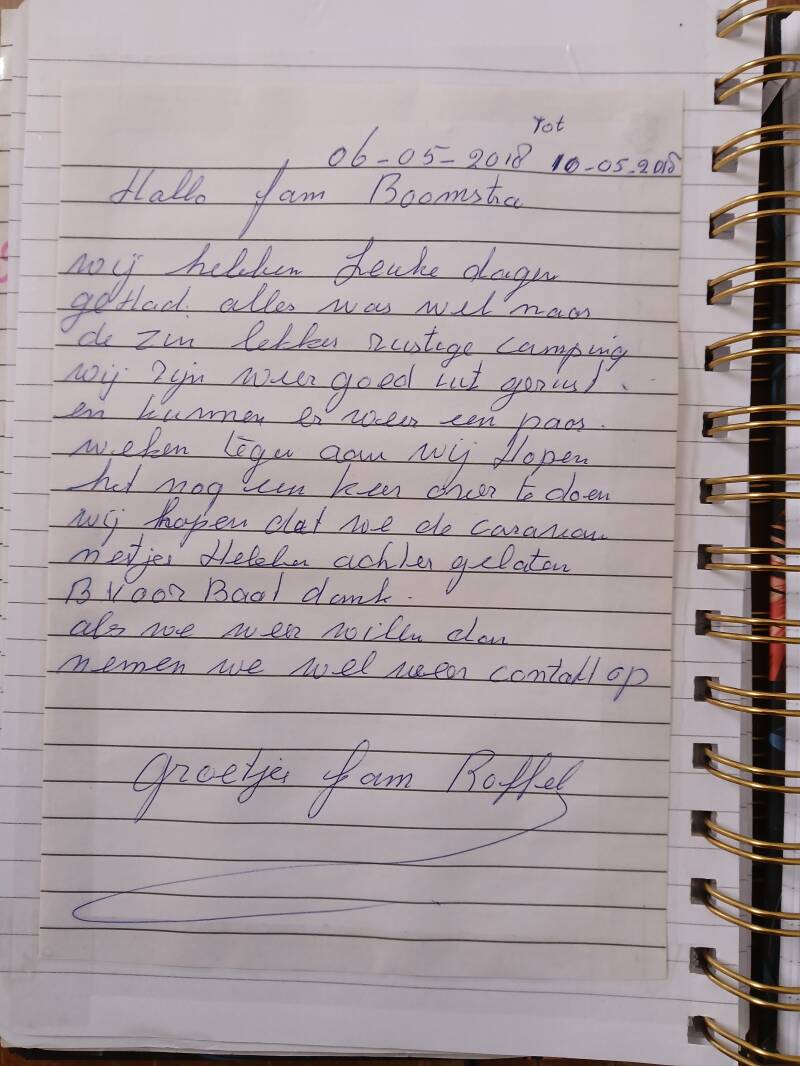 Tot
06-05-2018 10-05-2018
Hallo fam Boomstra
wij hebben Leuke dagen
geHad. alles was wel naar
de zin lekker rustige camping
wij zijn weer goed uit gerust.
en kunnen er weer een paar.
weken tegen aan wij Hopen
het nog een keer over te doen
wij hopen dat we de caravan
netjes Hebben achter gelaten
B voor Baat dank.
als we weer willen dan
nemen we wel weer contakt op
Groetjes fam Roffel